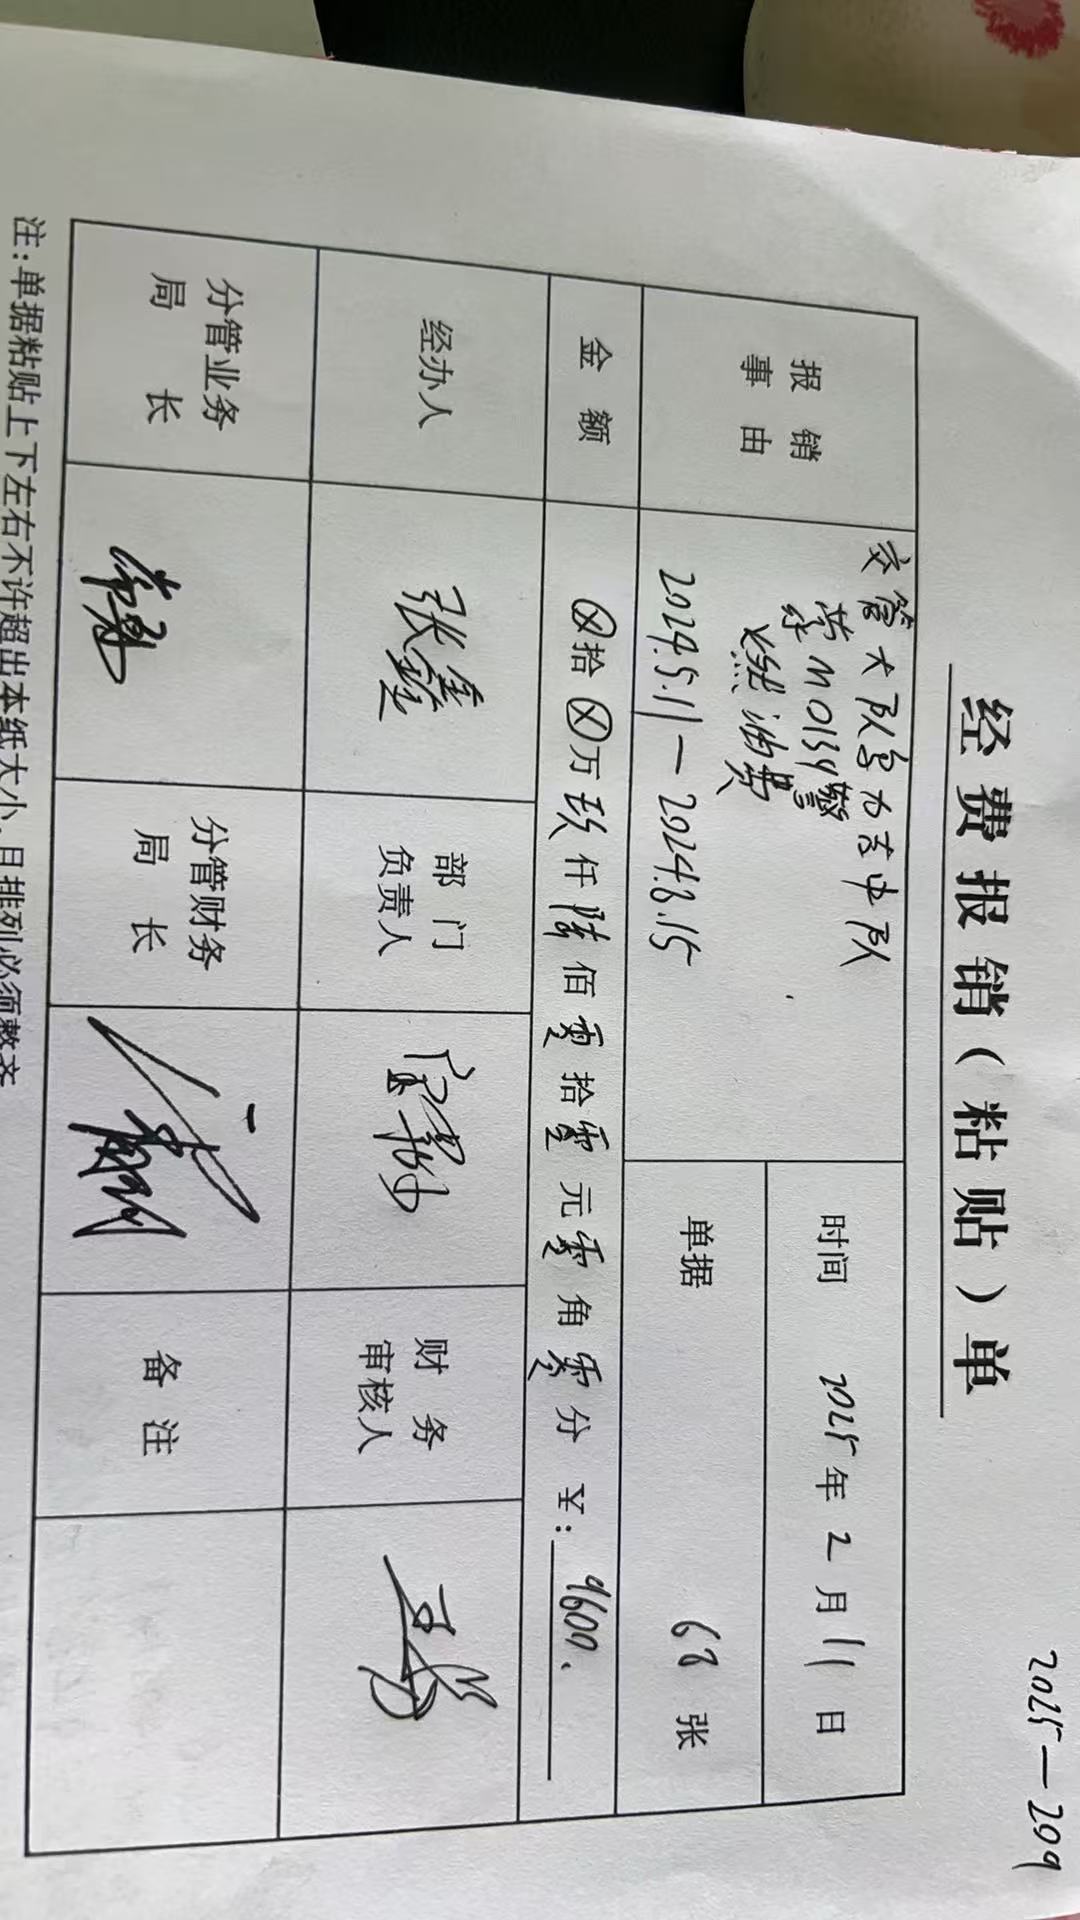 2025—209
经费报销（粘贴）单
报销事由
交管大队乌力吉中队
蒙M0139警
燃油费
2024.5.11—2024.8.15
时间 2025年2月11日
单据 68张
金额 ⊗拾⊗万玖仟陆佰零拾零元零角零分 ￥：9600.
经办人 张鑫 部门负责人 财务审核人
分管业务局长 分管财务局长 备注
注：单据粘贴上下左右不许超出本纸大小，且排列必须整齐